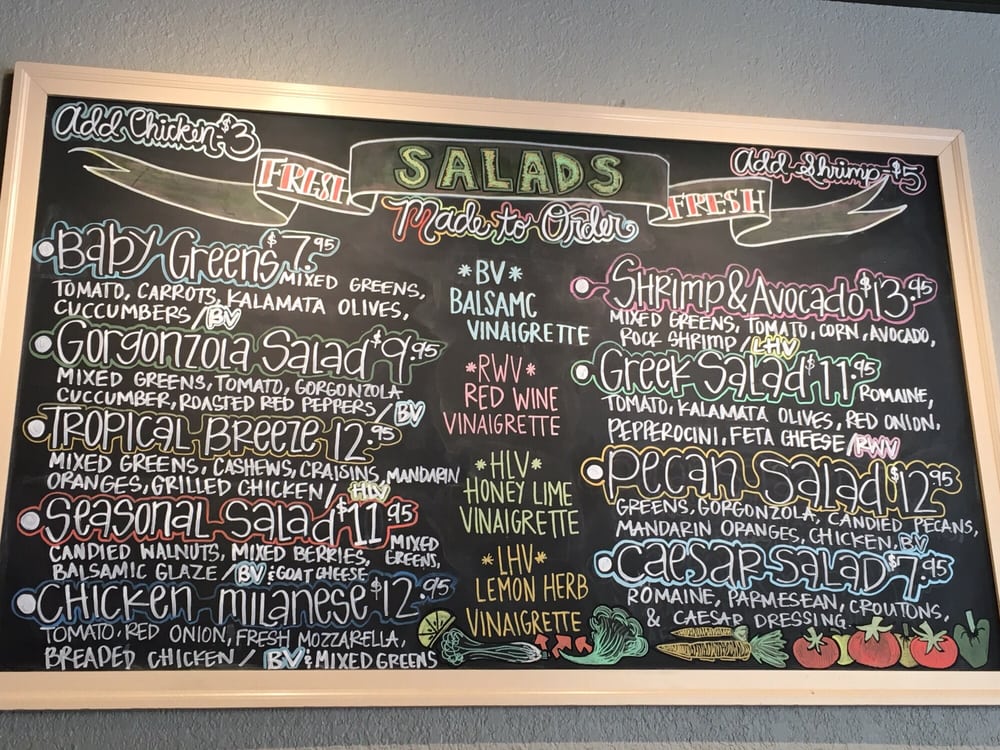 Add Chicken $3
Add Shrimp $5
FRESH SALADS FRESH
Made to Order
Baby Greens $7.95
MIXED GREENS,
TOMATO, CARROTS, KALAMATA OLIVES,
CUCCUMBERS / BV
Gorgonzola Salad $9.95
MIXED GREENS, TOMATO, GORGONZOLA
CUCCUMBER, ROASTED RED PEPPERS / BV
TROPICAL BREEZE 12.95
MIXED GREENS, CASHEWS, CRAISINS, MANDARIN
ORANGES, GRILLED CHICKEN / HLV
Seasonal Salad $11.95
MIXED
CANDIED WALNUTS, MIXED BERRIES, GREENS,
BALSAMIC GLAZE / BV & GOAT CHEESE
Chicken milanese $12.95
TOMATO, RED ONION, FRESH MOZZARELLA,
BREADED CHICKEN / BV & MIXED GREENS
*BV*
BALSAMC
VINAIGRETTE
*RWV*
RED WINE
VINAIGRETTE
*HLV*
HONEY LIME
VINAIGRETTE
*LHV*
LEMON HERB
VINAIGRETTE
Shrimp & Avocado $13.95
MIXED GREENS, TOMATO, CORN, AVOCADO,
ROCK SHRIMP / LHV
Greek Salad $11.95
ROMAINE,
TOMATO, KALAMATA OLIVES, RED ONION,
PEPPEROCINI, FETA CHEESE / RWV
pecan salad $12.95
GREENS, GORGONZOLA, CANDIED PECANS,
MANDARIN ORANGES, CHICKEN, BV
caesar salad $7.95
ROMAINE, PARMESEAN, CROUTONS,
& CAESAR DRESSING